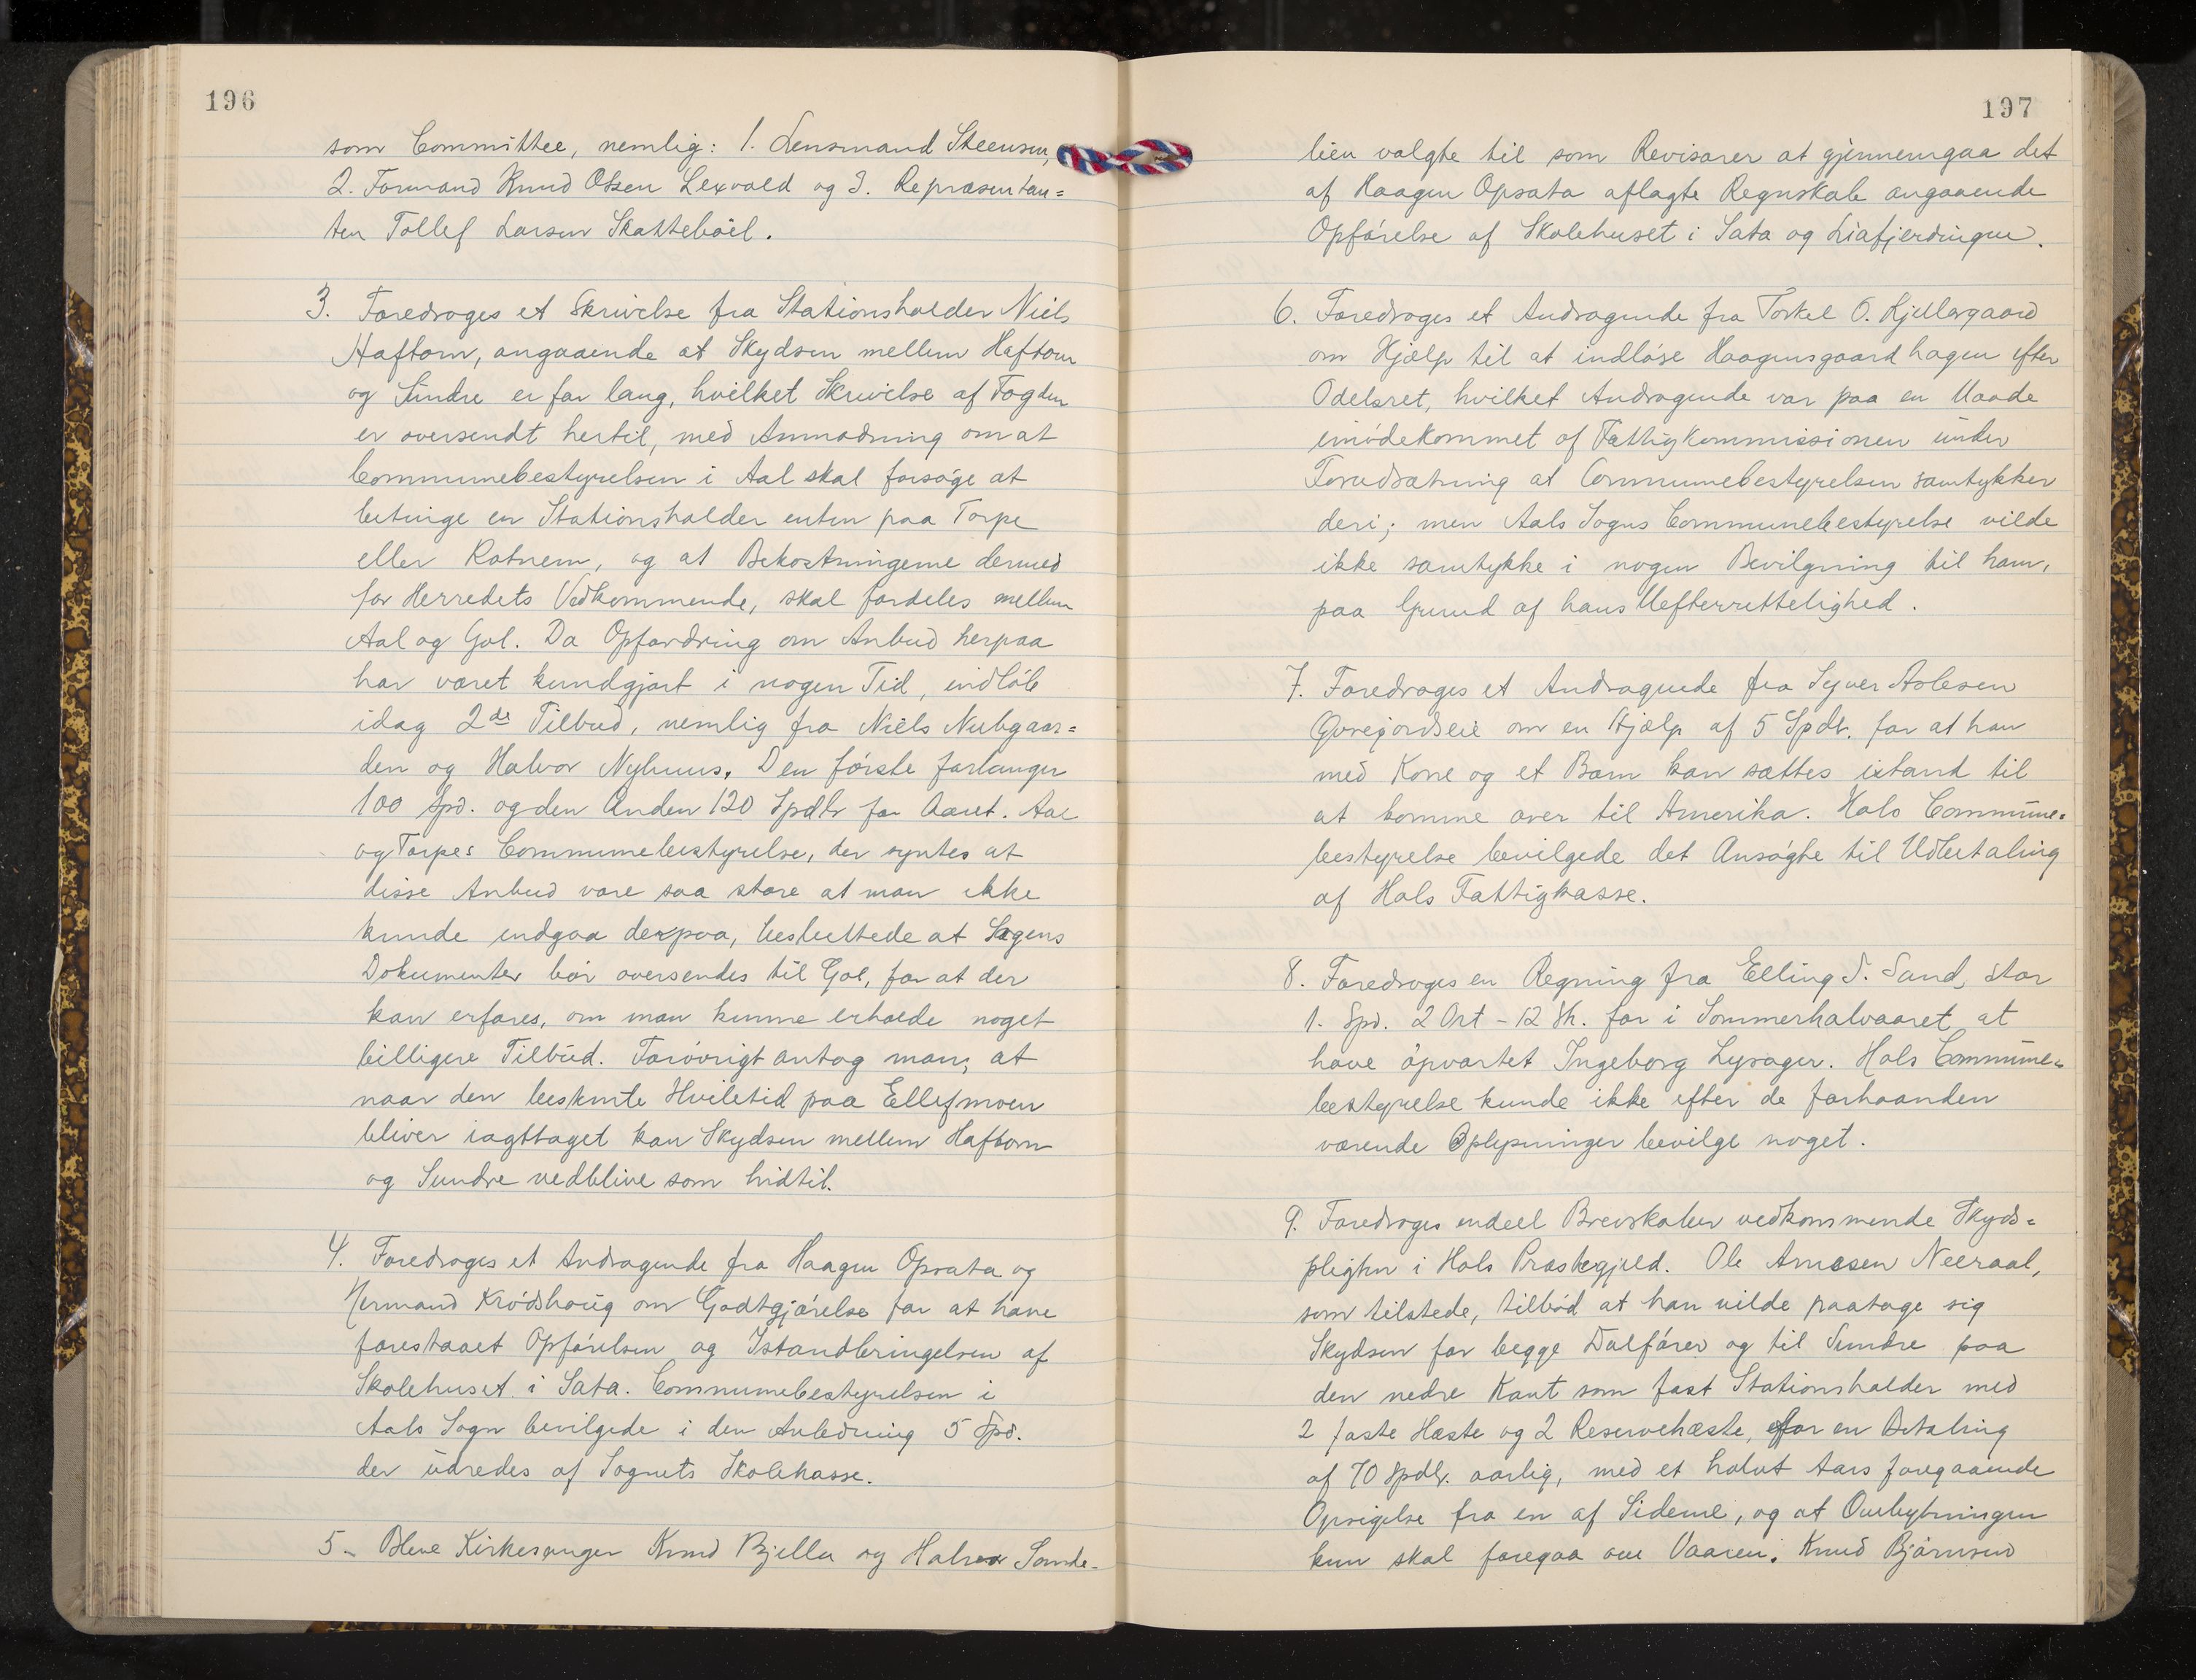 196
som Committee, nemlig: 1. Lensmand Steensen,
2. Formand Knud Olsen Lexvold og 3. Repræsentan=
ten Tollef Larsen Skatteböel.
3. Foredroges et Skrivelse fra Stationsholder Niels
Haftorn, angaaende at Skydsen mellem Haftorn
og Sundre er for lang, hvilket Skrivelse af Fogden
er oversendt hertil, med Anmodning om at
Communebestyrelsen i Aal skal forsøge at
betinge en Stationsholder enten paa Torpe
eller Rotnem, og at Bekostningerne dermed
for Herredets Vedkommende, skal fordeles mellem
Aal og Gol. Da Opfordring om Anbud herpaa
har været kundgjort i nogen Tid, indløb
idag 2de Tilbud, nemlig fra Niels Nubgaar=
den og Halvor Nyhuus. Den første forlanger
100 Spd. og den Anden 120 Spdlr for Aaret. Aal
og Torpes Communebestyrelse, der syntes at
disse Anbud vare saa store at man ikke
kunde indgaa derpaa, besluttede at Sagens
Dokumenter bör oversendes til Gol, for at der
kan erfares, om man kunne erholde noget
billigere Tilbud. Forövrigt antog man, at
naar den beskmte Hviletid paa Ellefmoen
bliver iagttaget kan Skydsen mellem Haftorn
og Sundre vedblive som hidtil.
4. Foredroges et Andragende fra Haagen Opsata og
Hermand Krödshoug om Godtgjørelse for at have
forestaaet Opførelsen og Istandbringelsen af
Skolehuset i Sata. Communebestyrelsen i
Aals Sogn bevilgede i den Anledning 5 Spd.
der udredes af Sognets Skolekasse.
5- Bleve Kirkesanger Knud Bjella og Halvor Sonde-
197
lien valgte til som Revisorer at gjennemgaa det
af Haagen Opsata aflagte Regnskab angaaende
Opførelse af Skolehuset i Sata og Liafjerdingen.
6. Foredroges et Andragende fra Torkel O. Kjellergaard
om Hjælp til at indløse Haagensgaardhagen efter
Odelsret, hvilket Andragende var paa en Maade
imødekommet af Fattigkommissionen under
Forudsætning at Communebestyrelsen samtykker
deri; men Aals Sogns Communebestyrelse vilde
ikke samtykke i nogen Bevilgning til ham,
paa Grund af hans Uefterrettelighed.
7. Foredroges et Andragende fra Syver Aslesen
Qvregjordseie om en Hjælp af 5 Spdlr. for at han
med Kone og et Barn kan sættes istand til
at komme over til Amerika. Hols Commune=
bestyrelse bevilgede det Ansøgte til Udbetaling
af Hols Fattigkasse.
8. Foredroges en Regning fra Elling S. Sand, stor
1. Spd. 2 Ort - 12 Sk. for i Sommerhalvaaret at
have opvartet Ingeborg Lysager. Hols Commune=
bestyrelse kunde ikke efter de forhaanden
værende Oplysninger bevilge noget.
9. Foredroges endeel Brevskaber vedkommende Skyds=
pligten i Hols Præstegjeld. Ole Arnesen Neeraal,
som tilstede, tilbød at han vilde paatage sig
Skydsen for begge Dalfører og til Sundre paa
den nedre Kant som fast Stationsholder med
2 faste Heste og 2 Reservehæste, for en Betaling
af 70 Spdlr. aarlig, med et halvt Aars foregaaende
Opsigelse fra en af Siderne, og at Ombytningen
kun skal foregaa om Vaaren. Knud Bjørnsen